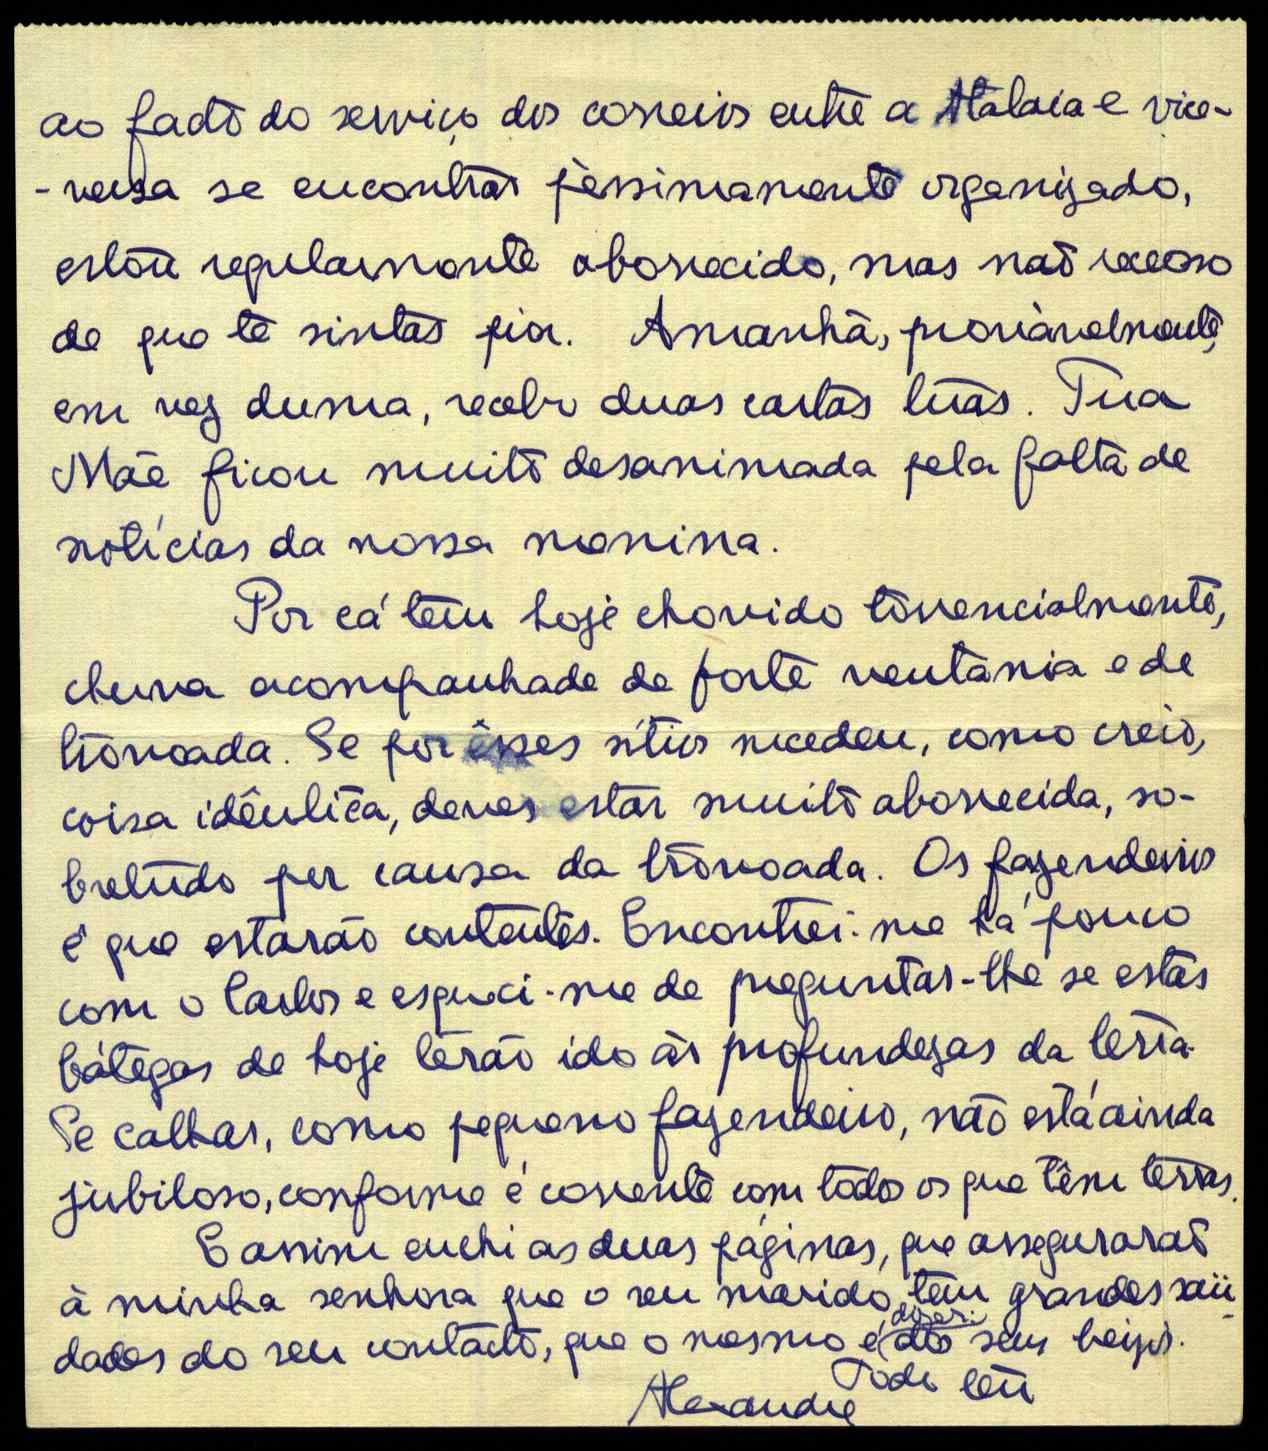 ao facto do serviço dos correios entre a Atalaia e vice-
-versa se encontrar pèssimamente organizado,
estou regularmente aborrecido, mas não receoso
de que te sintas pior. Amanhã, provàvelmente,
em vez duma, recebo duas cartas tuas. Tua
Mãe ficou muito desanimada pela falta de
notícias da nossa menina.
Por cá tem hoje chovido torrencialmente,
chuva acompanhada de forte ventania e de
trovoada. Se por êsses sítios sucedeu, como creio,
coisa idêntica, deves estar muito aborrecida, so-
bretudo por causa da trovoada. Os fazendeiros
é que estarão contentes. Encontrei-me há pouco
com o Carlos e esqueci-me de preguntar-lhe se estas
bátegas de hoje terão ido às profundezas da terra.
Se calhar, como pequeno fazendeiro, não está ainda
jubiloso, conforme é corrente com todos os que têm terras.
E assim enchi as duas páginas, que assegurarão
à minha senhora que o seu marido tem grandes saü-
dades do seu contacto, que o mesmo é, dizer: dos seus beijos.
Todo teu
Alexandre